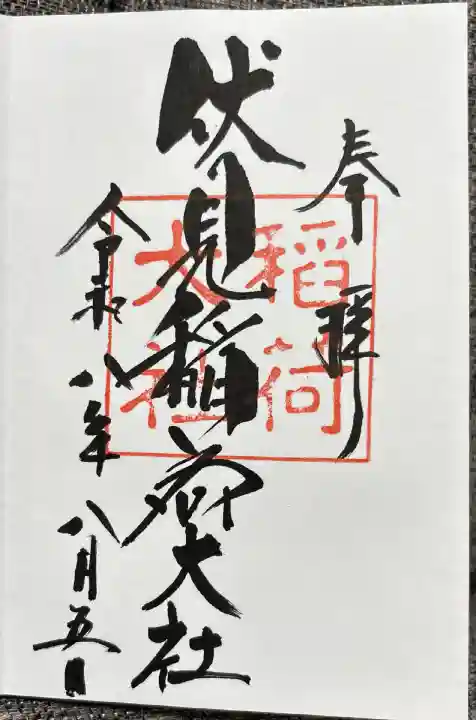 奉拝
伏見稲荷大社
稲荷
大社
令和八年 八月五日